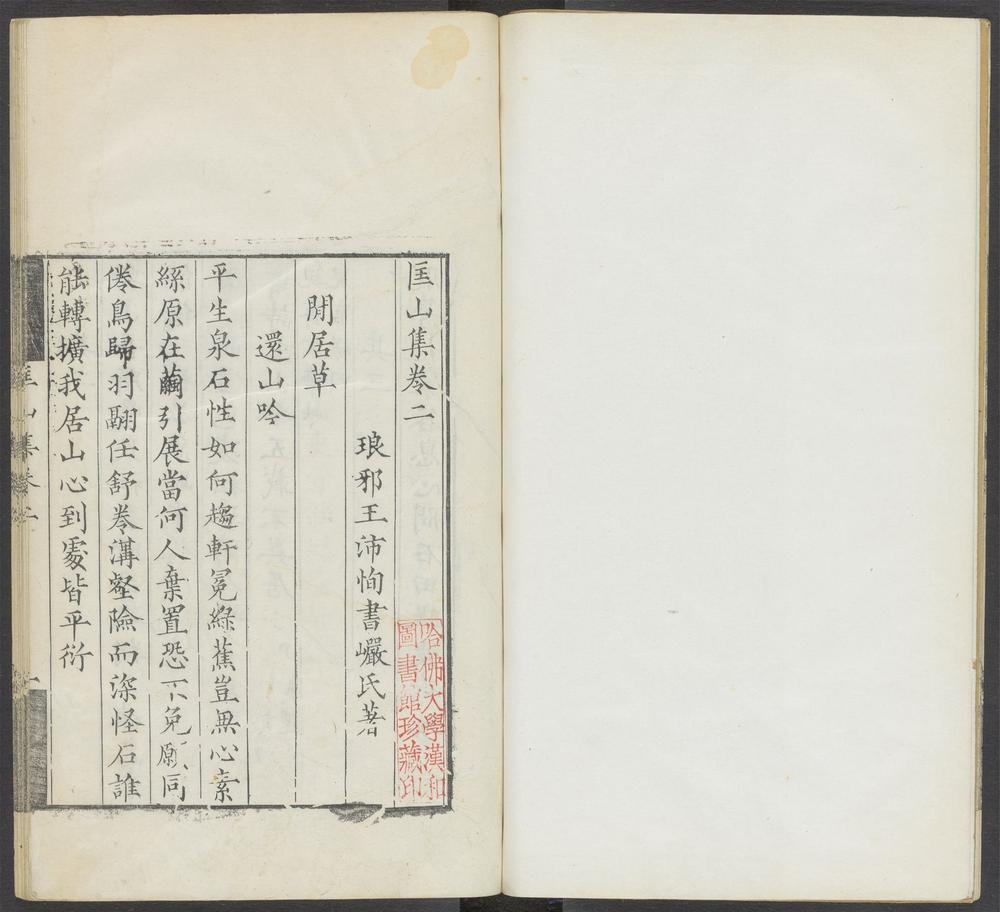 匡山集卷二
琅邪王沛恂書巖氏著
閒居草
還山吟
平生泉石性如何趨軒冕綠蕉豈無心素
絲原在繭引展當何人棄置恐不免願同
倦鳥歸羽翮任舒卷溝壑險而深怪石誰
能轉擴我居山心到處皆平衍
匡山集卷二
一
哈佛大學漢和
圖書館珍藏印